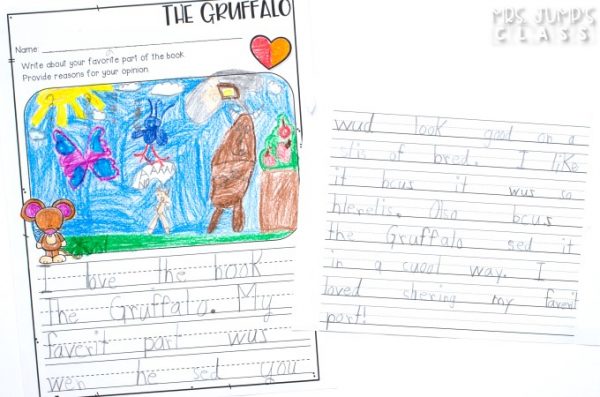 THE GRUFFALO
Name:
Write about your favorite part of the book.
Provide reasons for your opinion.
I love the book
the Gruffalo. My
faverit part wus
wen he sed you
wud look good on a
slis of bred. I like
it bcus it wus so
hlerelis. Also bcus
the Gruffalo sed it
in a cuool way. I
loved shering my faverit
part!
MRS. JUMP'S
CLASS